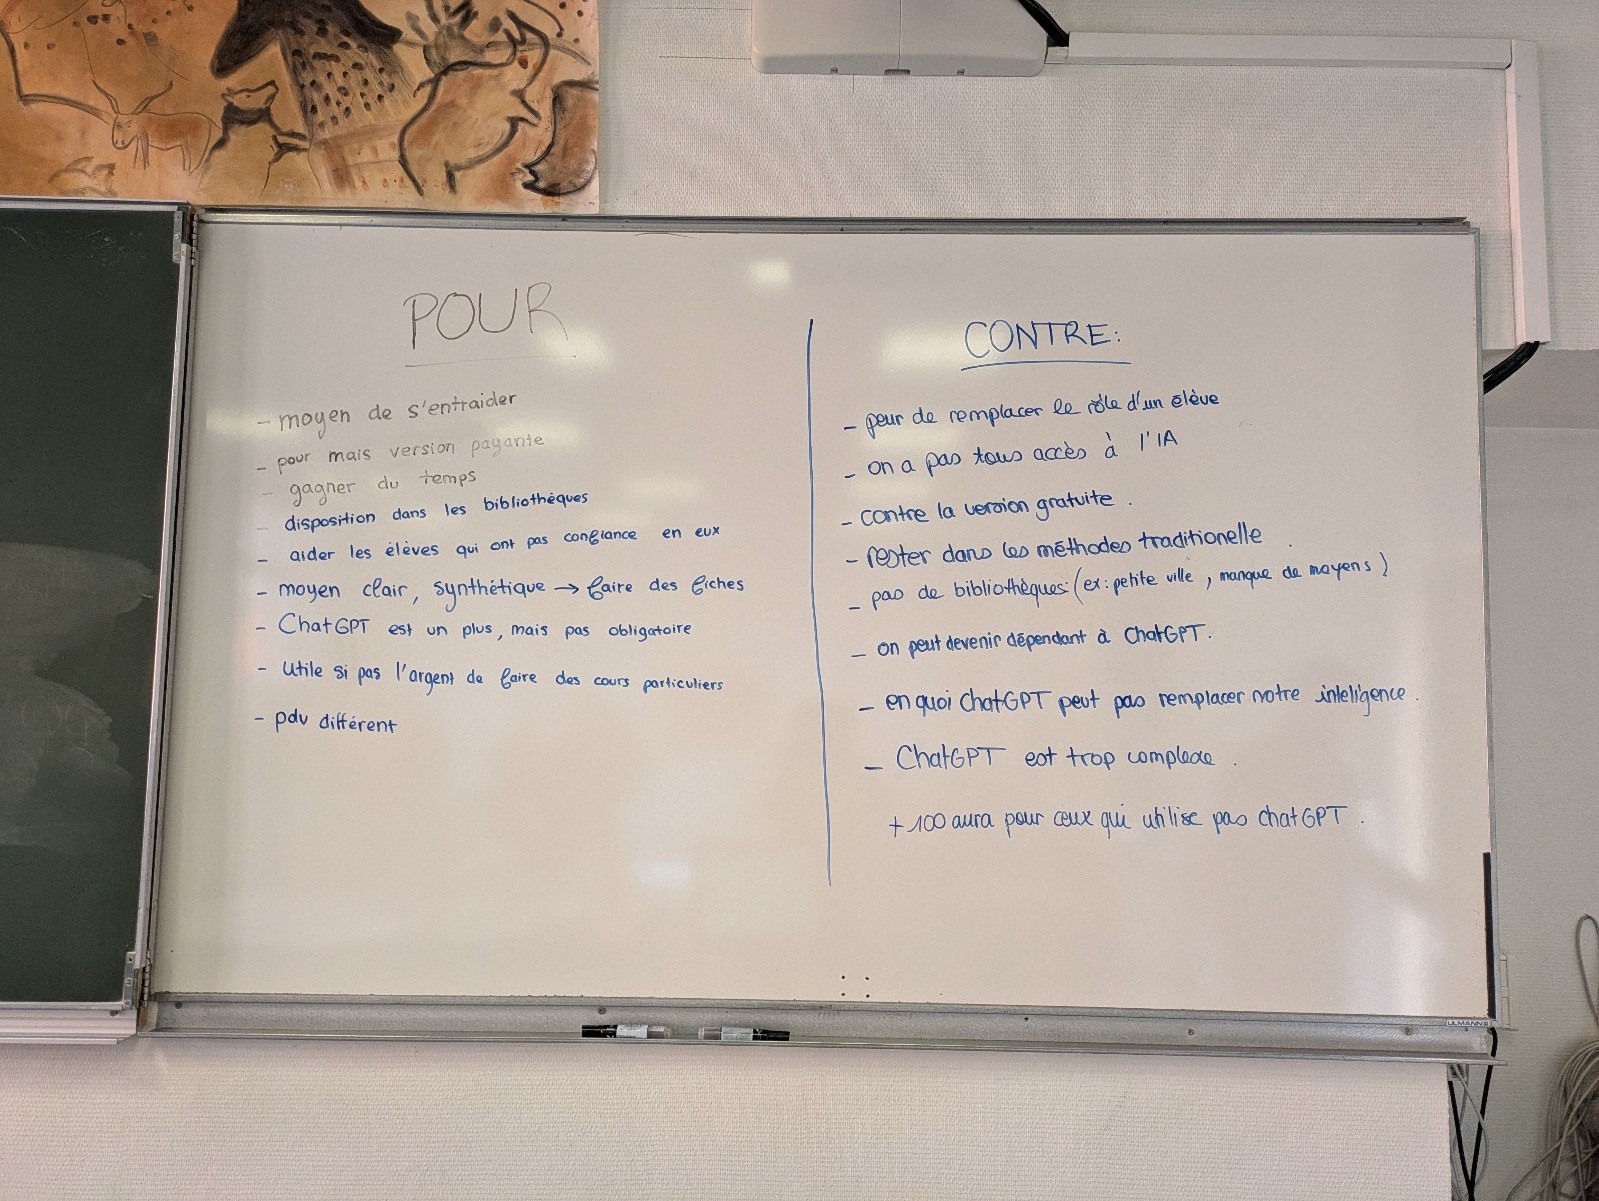 POUR
- moyen de s'entraider
- pour mais version payante
- gagner du temps
- disposition dans les bibliothèques
- aider les élèves qui ont pas confiance en eux
- moyen clair, synthétique → faire des fiches
- ChatGPT est un plus, mais pas obligatoire
- Utile si pas l'argent de faire des cours particuliers
- pdv différent
CONTRE:
- peur de remplacer le rôle d'un élève
- on a pas tous accès à l'IA
- contre la version gratuite.
- rester dans les méthodes traditionelle.
- pas de bibliothèques (ex: petite ville, manque de moyens)
- on peut devenir dépendant à ChatGPT.
- en quoi ChatGPT peut pas remplacer notre inteligence.
- ChatGPT est trop complexe.
+100 aura pour ceux qui utilise pas chatGPT.
ULMANN